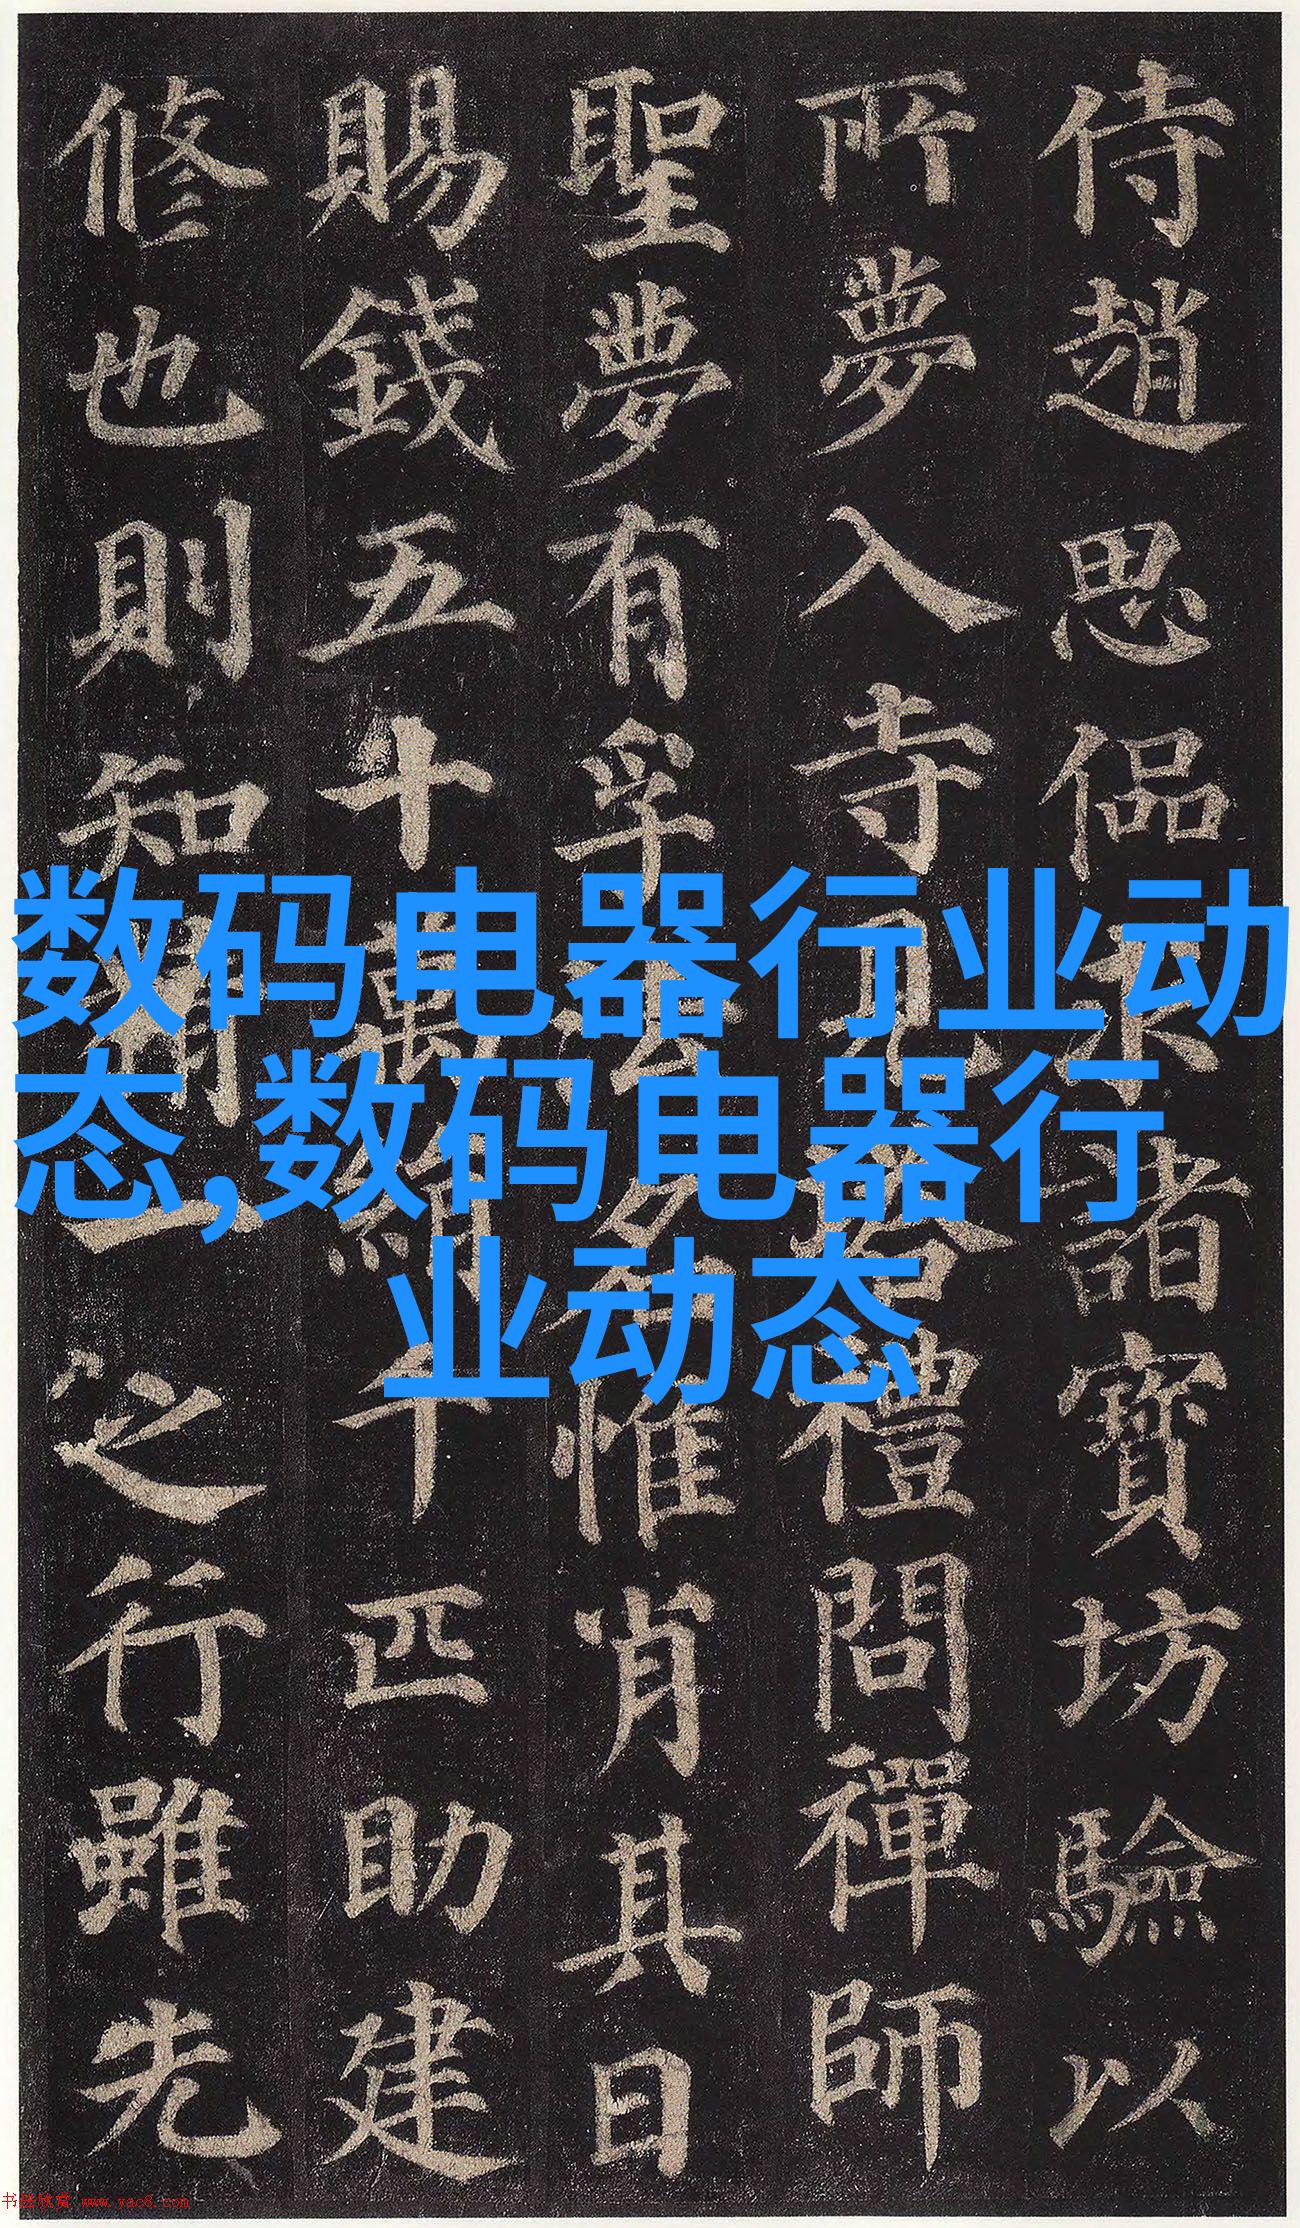 侍趙思偘求諸寶坊驗以
所夢入寺見塔禮問禪師
聖夢有孚法名惟肖其日
賜錢五十萬絹千匹助建
修也則知精一之行雖先
数码电器行业动
态,数码电器行
业动态
书法欣赏 www.yac8.com